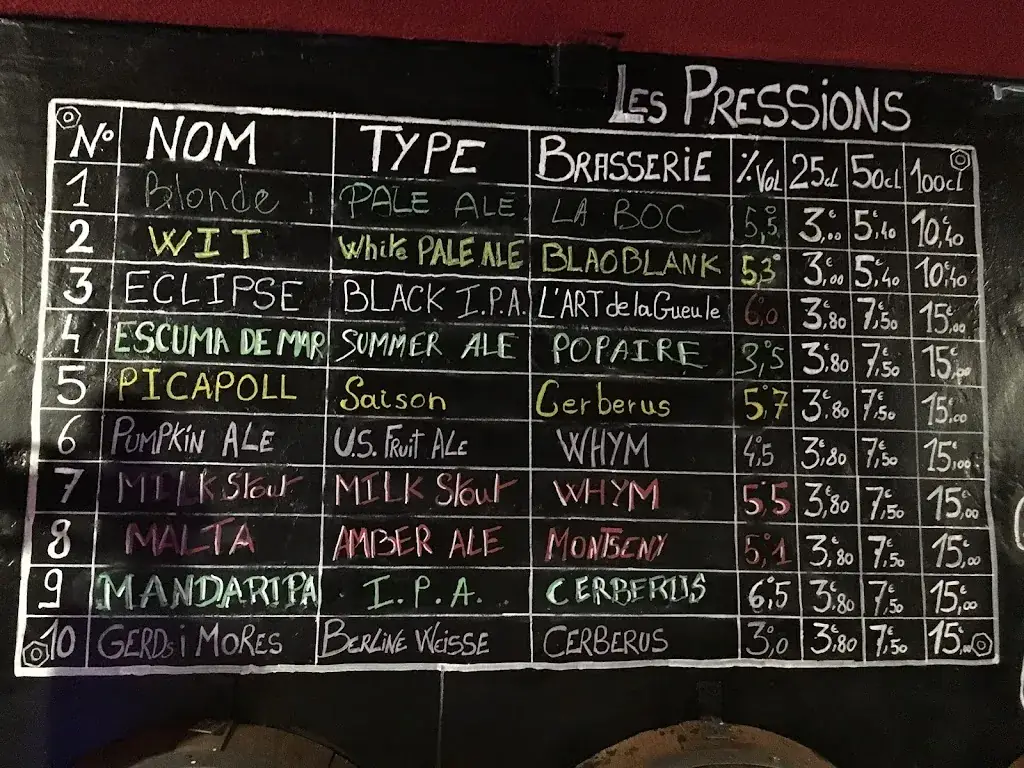 LES PRESSIONS
N° NOM TYPE BRASSERIE % Vol 25cl 50cl 100cl
1 Blonde : PALE ALE LA BOC 5,5° 3,00€ 5,40€ 10,40€
2 WIT White PALE ALE BLAOBLANK 5,3° 3,00€ 5,40€ 10,40€
3 ECLIPSE BLACK I.P.A. L'ART de la Gueule 6,0 3,80€ 7,50€ 15,00€
4 ESCUMA DE MAR SUMMER ALE POPAIRE 3,5° 3,80€ 7,50€ 15,00€
5 PICAPOLL Saison Cerberus 5,7° 3,80€ 7,50€ 15,00€
6 PUMPKIN ALE U.S. FRUIT ALE WHYM 4,5° 3,80€ 7,50€ 15,00€
7 MILK Stout MILK Stout WHYM 5,5° 3,80€ 7,50€ 15,00€
8 MALTA AMBER ALE MONTSENY 5,1° 3,80€ 7,50€ 15,00€
9 MANDARIPA I.P.A. CERBERUS 6,5° 3,80€ 7,50€ 15,00€
10 GERDS i MORES BERLINE WEISSE CERBERUS 3,0° 3,80€ 7,50€ 15,00€